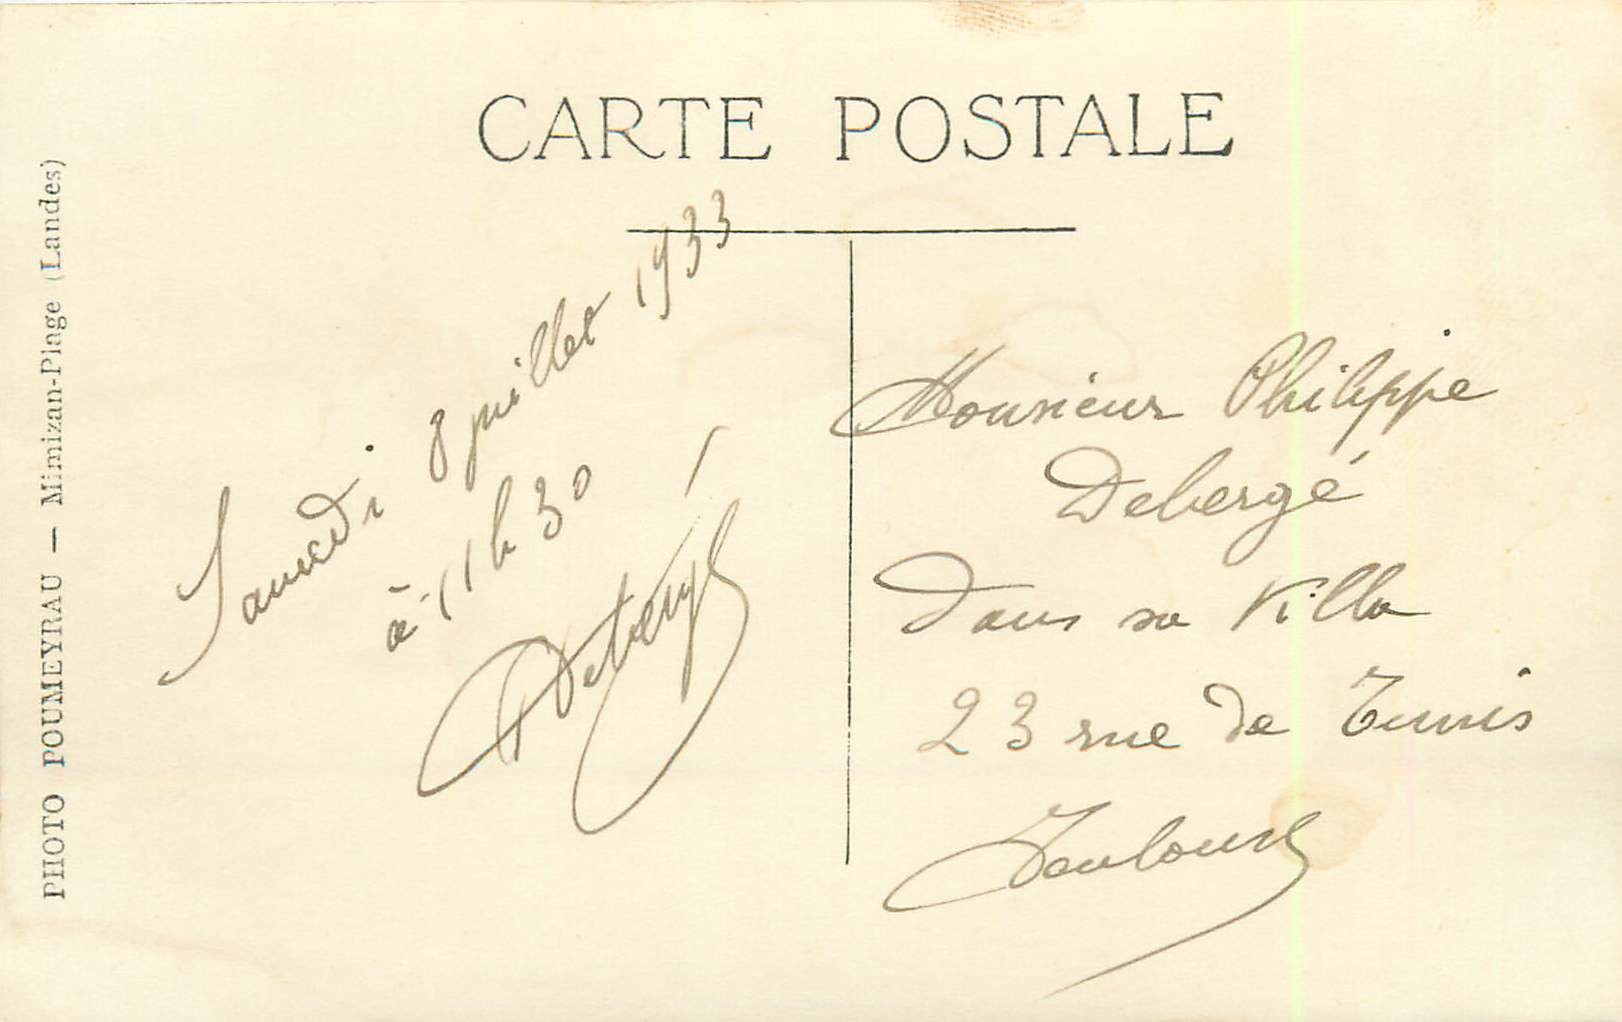 CARTE POSTALE
PHOTO POUMEYRAU — Mimizan-Plage (Landes)
Samedi 8 juillet 1933
à 11 h 30
Debergé
Monsieur Philippe
Debergé
Dans sa Villa
23 rue de Tunis
Toulouse